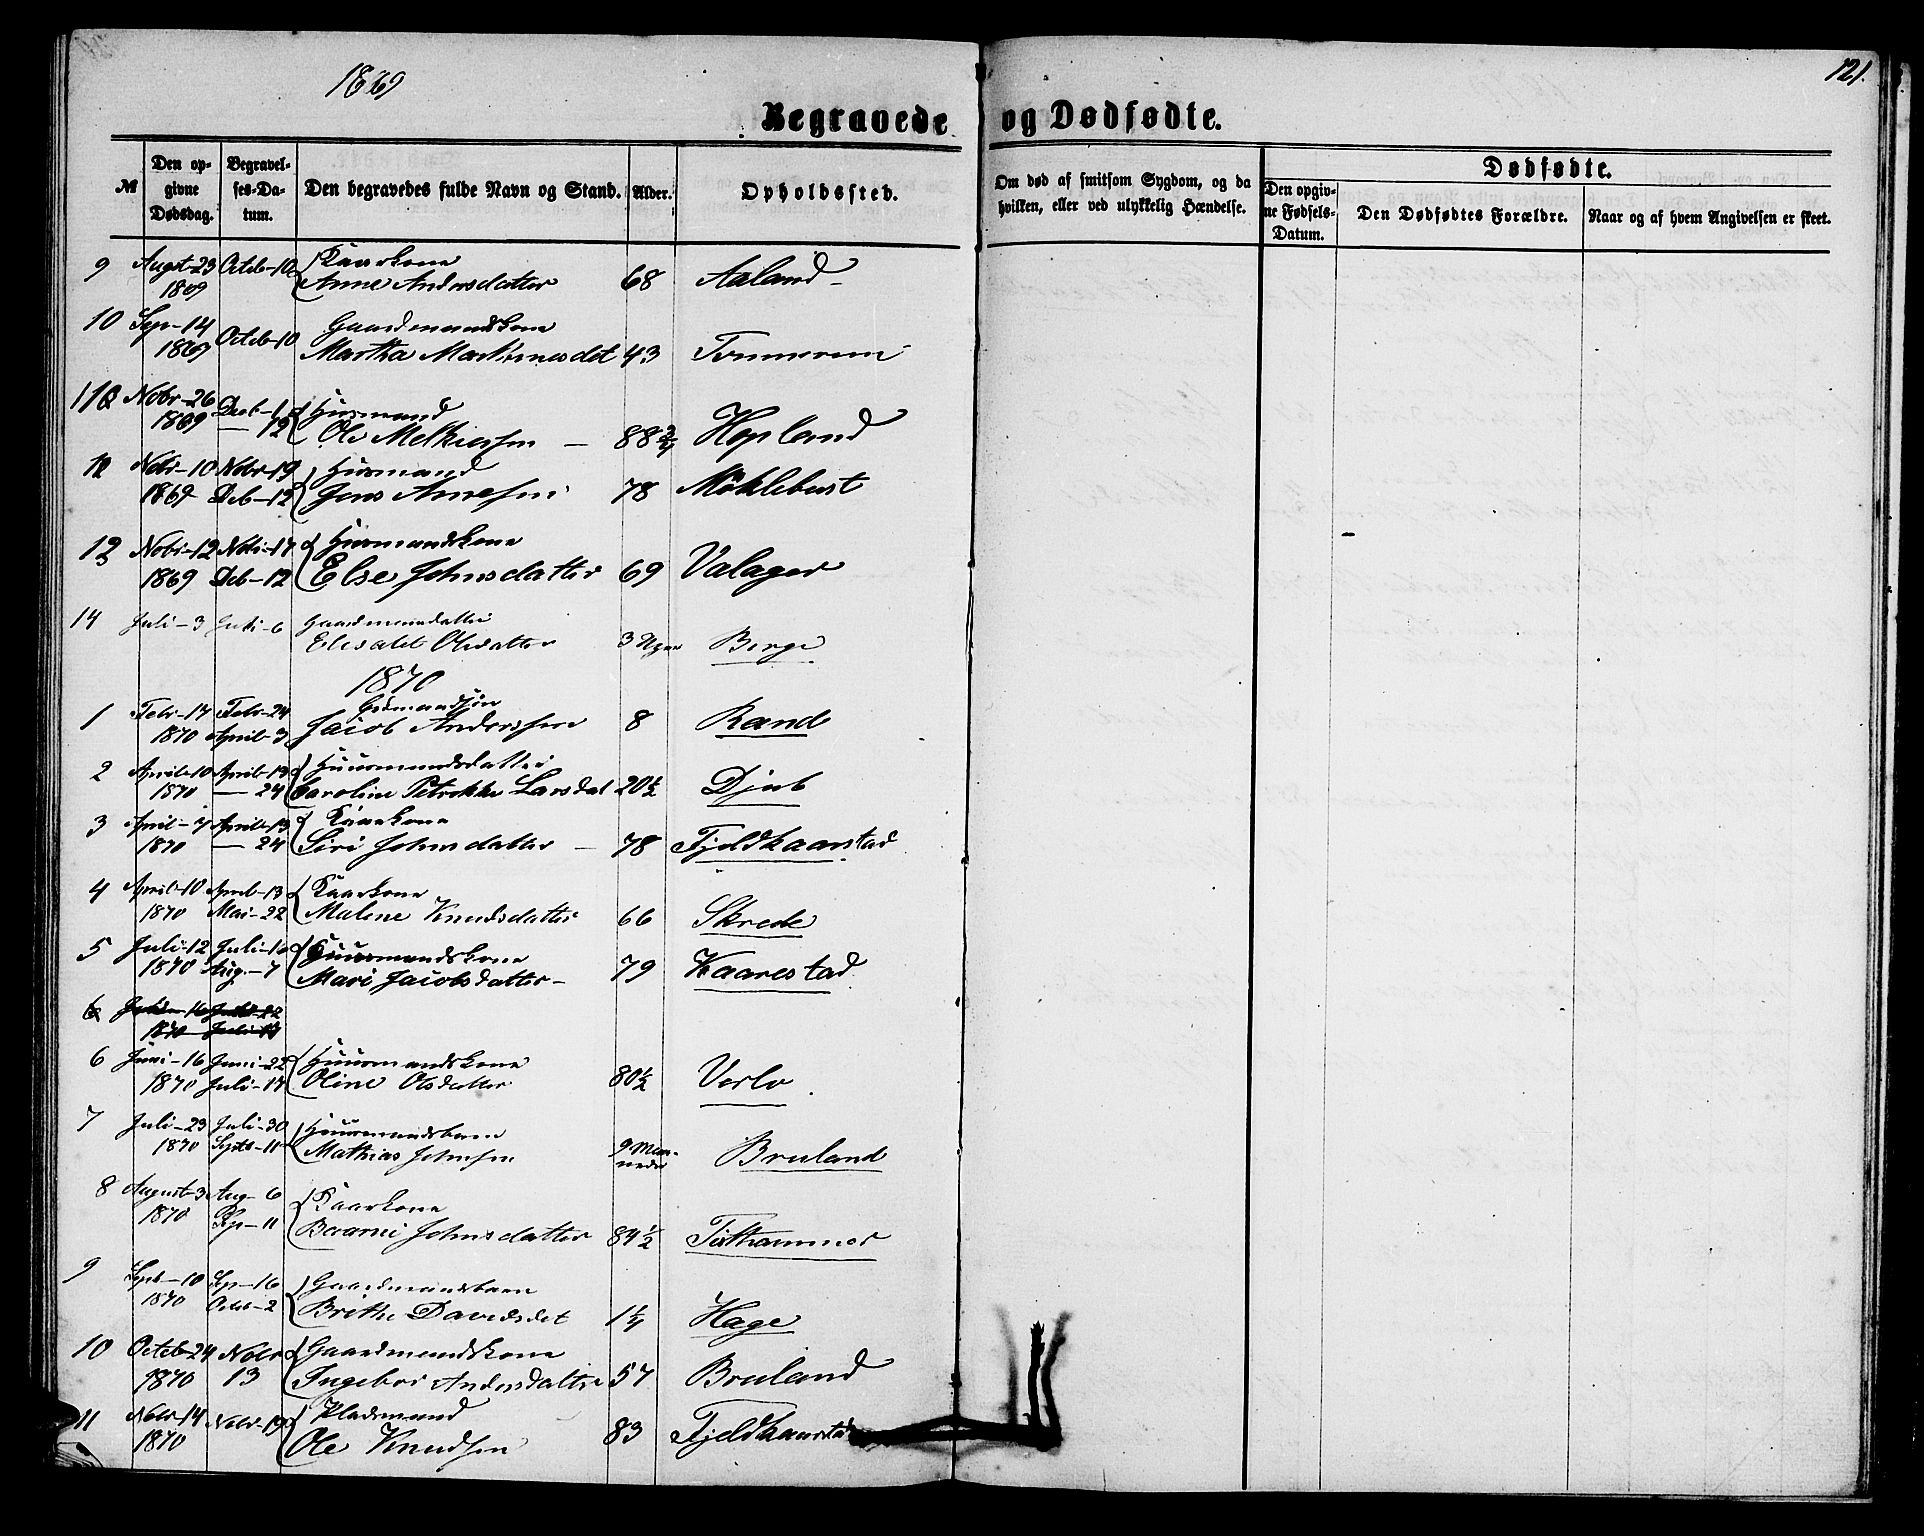 1869
121.
Begravede og Dødfødte.
№
Den opgivne Dødsdag.
Begravelses-Datum.
Den begravedes fulde Navn og Stand.
Alder.
Opholdssted.
Om død af smitsom Sygdom, og da hvilken, eller ved ulykkelig Hændelse.
Dødfødte.
Den opgivne Fødsels-Datum.
Den Dødfødtes Forældre.
Naar og af hvem Angivelsen er skeet.
9 Augst-23 Octob-10 Kaarkone
1869 Anne Andersdatter 68 Aaland
10 Sep-14 Octob-10 Gaardmandskone
1869 Martha Martinusdet 43
11 Nobr-26 Huusmand
1869 — 12 Ole Mathiassen 88 3/4 Hopland
12 Nobr-10 Nobr-19 Huusmand
1869 Deb-12 Jens Arnesen 78 Möklebust
13 Nobr-12 Nobr-17 Huusmandskone
1869 Deb-12 Else Johnsdatter 69 Valager
14 Juli-3 Juli-6 Gaardmandsdatter
Elisabet Olsdatter 3 Berge
1870
1 Febr-17 Febr-24
1870 April-3 Jacob Anderssen 8 Rand
2 April-10 April-13 Huusmandsdatter
1870 — 24 Caroline Petrikke Larsdat 20½ Djub
3 April-7 April-13 Kaarkone
1870 — 24 Siri Johnsdatter 78 Fjeldkaarstad
4 April-10 April-13 Kaarkone
1870 Mai-22 Malene Knudsdatter 66 Skrede
5 Juli-12 Juli-16 Huusmandskone
1870 Aug.-7 Mari Jacobsdatter 79 Kaarestad
6 Juni-16 Juni-22 Huusmandskone
1870 Juli-17 Oline Olsdatter 80½ Verlo
7 Juli-23 Juli-30 Huusmandsbarn
1870 Septb-11 Mathias Johnsen 9 Maaneder Bruland
8 August-3 Aug-6 Kaarkone
1870 Sep-11 Johnsdatter 84½
9 Sept-10 Sep-16 Gaardmandsbarn
1870 Octob-2 Brithe Davidsdet 1¼ Hage
10 Octob-24 Nobr Gaardmandskone
1870 13 Ingebor Andersdatter 57 Bruland
11 Nobr-14 Nobr-19 Pladsmand
1870 Ole Knudsen 83 Fjeldkaarstad